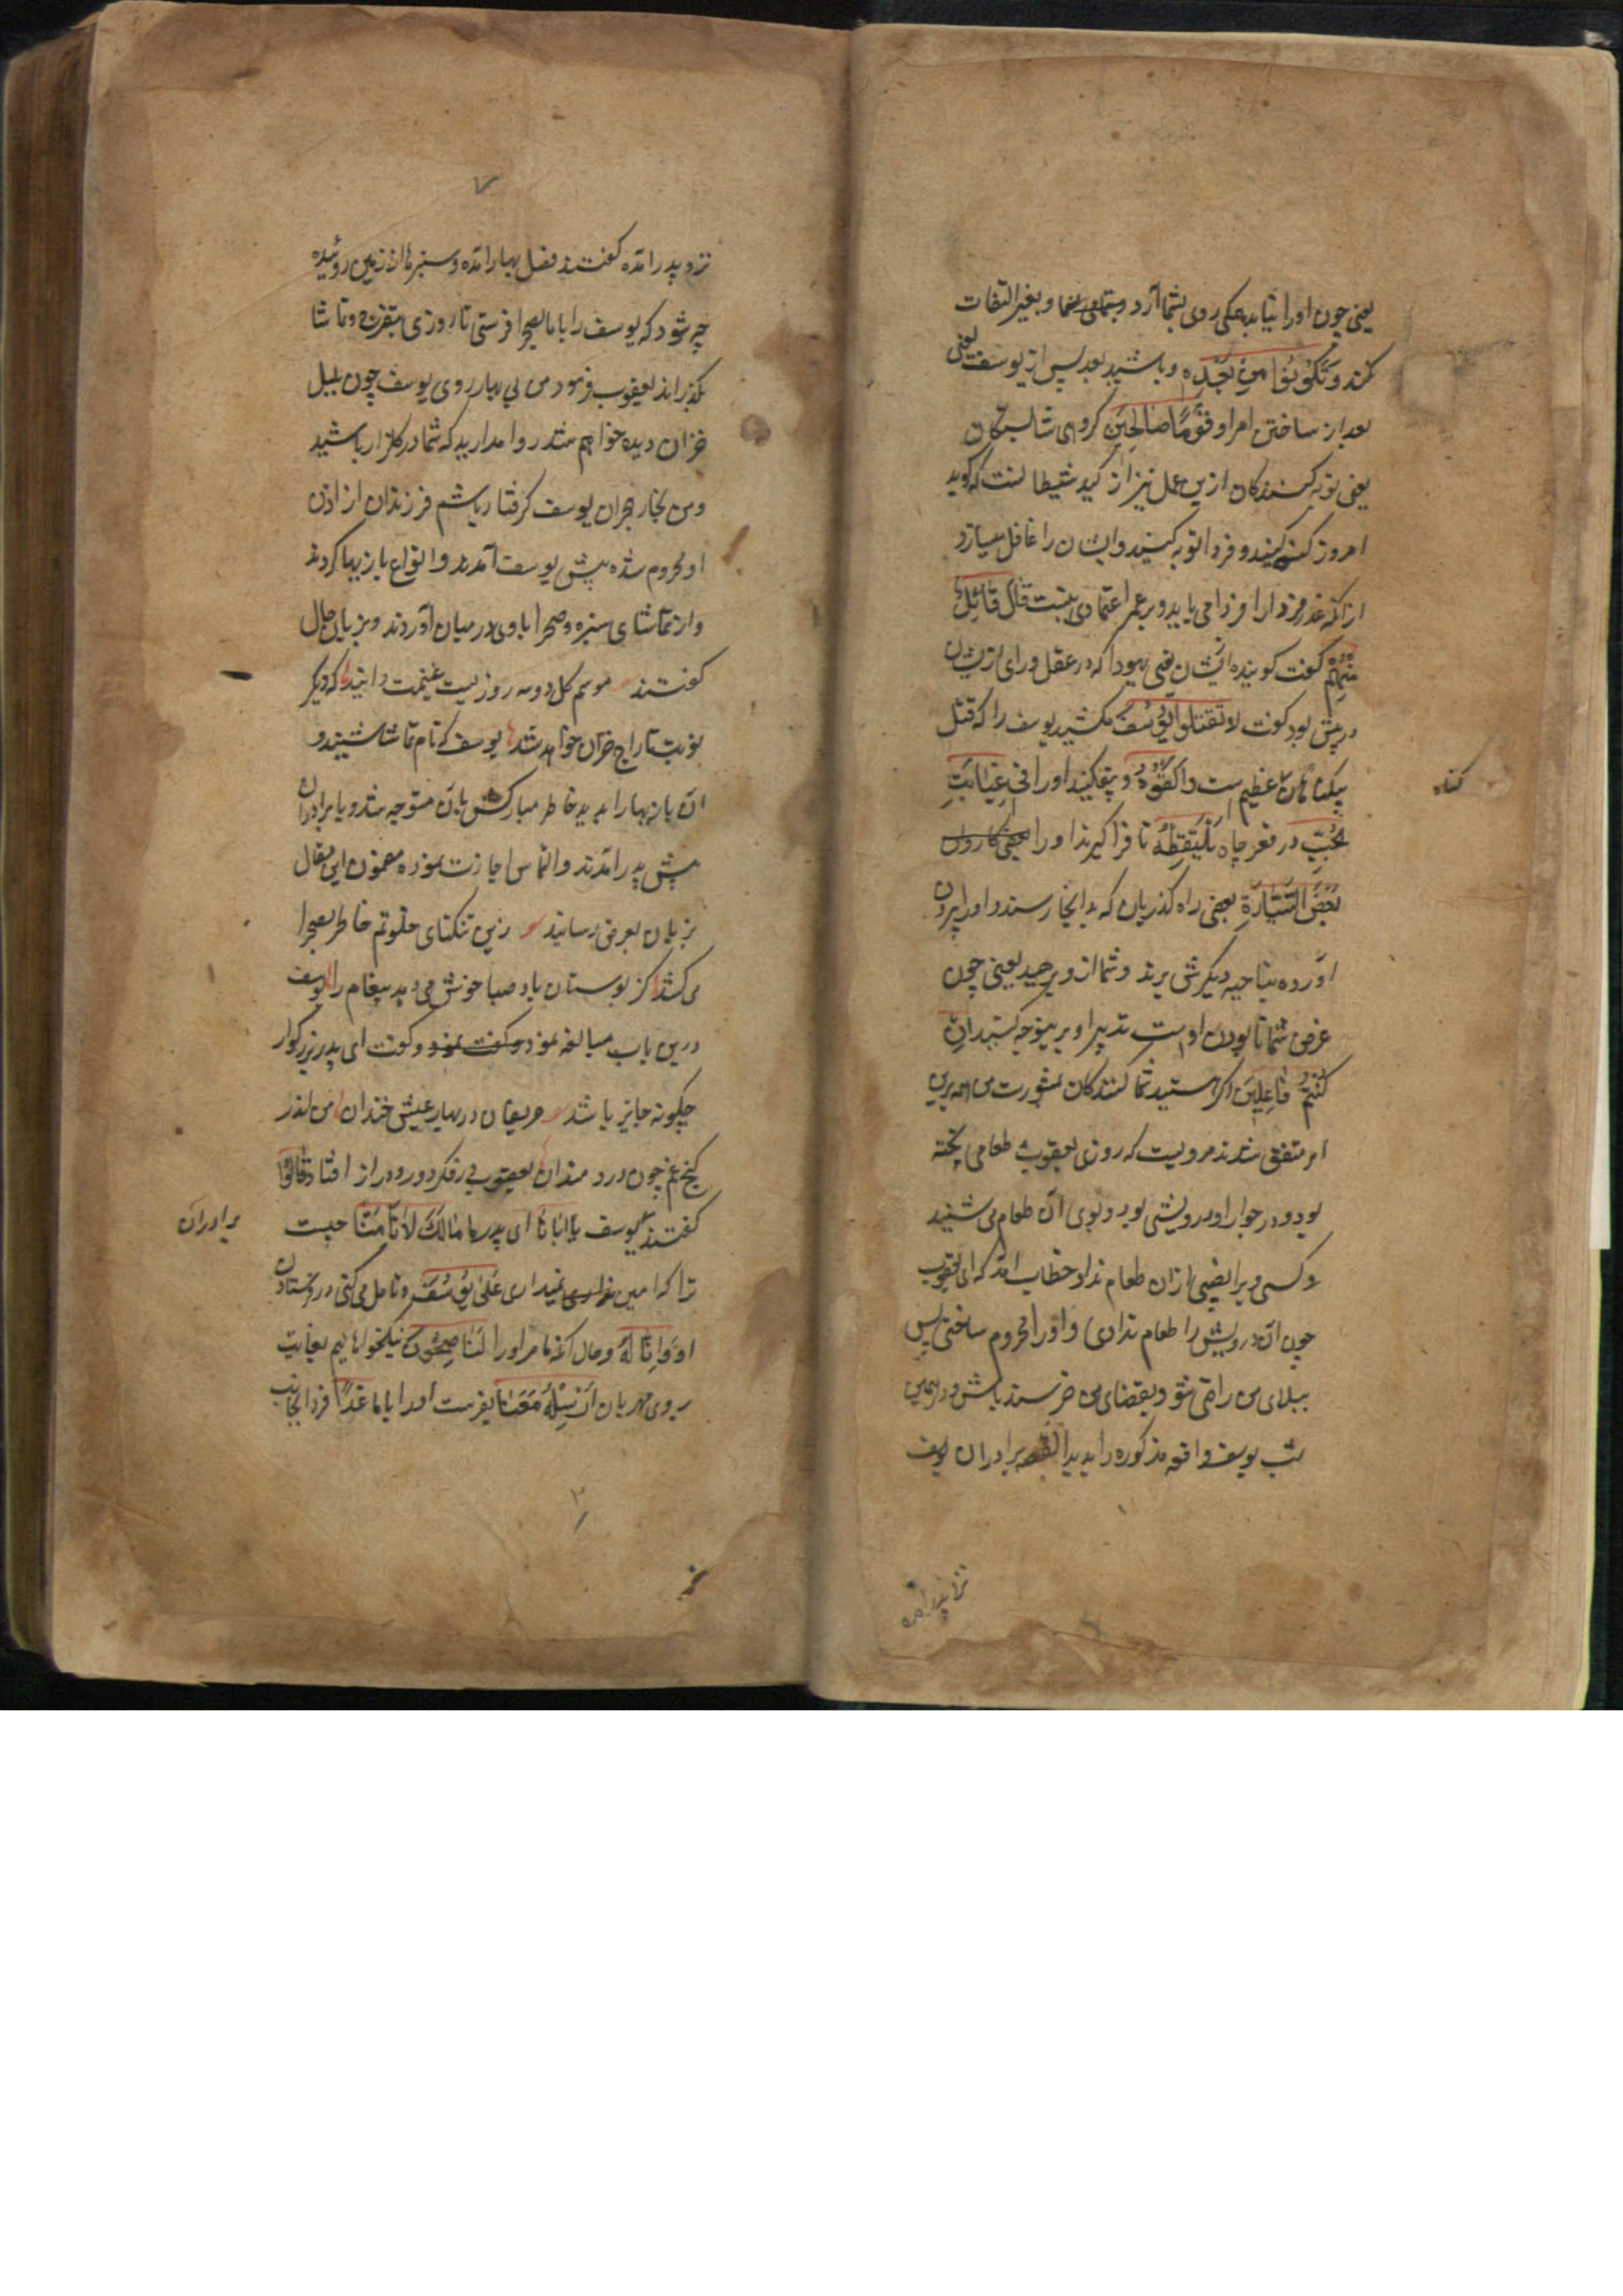 یعنی چون او را نیابد بهمکی روی بشما آرد و بغیر التفات
کند وَتَكُوْنُوْا مِنْ بَعْدِهٖ و باشید بعد پس از یوسف یعنی
بعد از ساختن امر او قَوْمًا صَالِحِيْنَ کروهی شایستکان
یعنی توبه کنندکان ازین عمل نیز از کید شیطانست که کوید
امروز کنه کنید و فردا توبه کنید و ایشان را غافل میسازد
از آنکه عذر فردا را فردا می باید و بر عمر اعتمادی نیست قَالَ قَائِلٌ
مِنْهُمْ کفت کوینده ایشان یعنی یهودا که در عقل و رای ازیشان
در پیش بود کفت لَا تَقْتُلُوْا يُوْسُفَ مکشید یوسف را که قتل
بیکناهان عظیم است وَاَلْقُوْهُ و بیفکنید او را فِيْ غَيَابَتِ
الْجُبِّ در قعر چاه يَلْتَقِطْهُ تا فرا کیرند او را بعضی کاروان
بَعْضُ السَّيَّارَةِ بعضی راه کذریان که بدانجا رسند و او را بیرون
آورده بناحیه دیکرش برند و شما از و برهید یعنی چون
غرض شما نابودن اوست تدبیر او برینوجه کنید اِنْ
كُنْتُمْ فَاعِلِيْنَ اکر هستید شما کنندکان بمشورت من همه برین
امر متفق شدند مرویست که روزی یعقوب طعامی پخته
بود و در جوار او درویشی بود و بوی آن طعام می شنید
و کسی ویرا نصیبی ازان طعام نداد خطاب آمد که ای یعقوب
چون آن درویش را طعام ندادی و او را محروم ساختی پس
ببلای من راضی شو و بقضای من خرسند باش و در همین
شب یوسف واقعه مذکوره را بدید القصه برادران یوسف
کناه
نزد پدر آمده
۷
نزد پدر آمده کفتند فصل بهار آمده و سبزها از زمین روئیده
چه شود که یوسف را با ما بصحرا فرستی تا روزی بتفرج و تماشا
بکذراند یعقوب فرمود من بی بهار روی یوسف چون بلبل
خزان دیده خواهم شد روا مدارید که شما در کلزار باشید
و من بخار هجران یوسف کرفتار باشم فرزندان از اذن
او محروم شده پیش یوسف آمدند و انواع بازیها کردند
و از تماشای سبزه و صحرا با وی در میان آوردند و بزبان حال
کفتند موسم کل دو سه روزیست غنیمت دانید که دیکر
نوبت تاراج خزان خواهد شد یوسف که نام تماشا شنید و
آن بازیها را بدید خاطر مبارکش بآن متوجه شد و با برادران
پیش پدر آمدند و التماس اجازت نموده مضمون این مقال
بزبان بعرض رسانید زین تنکنای خلوتم خاطر بصحرا
می کشد کز بوستان باد صبا خوش می دهد پیغام را یوسف
درین باب مبالغه نمود و کفت نمود و کفت ای پدر بزرکوار
چکونه جایز باشد حریفان در بهار عیش خندان من اندر
کنج غم چون دردمندان یعقوب در فکر دور و دراز افتاد قَالُوْا
کفتند یوسف يَا اَبَانَا ای پدر ما مَا لَكَ لَا تَاْمَنَّا چیست
ترا که امین نمیداری عَلٰى يُوْسُفَ و تامل می کنی در فرستادن
او وَاِنَّا لَهٗ و حال آنکه ما مر او را لَنَاصِحُوْنَ نیکخواهانیم بغایت
بر وی مهربان اَرْسِلْهُ مَعَنَا بفرست او را با ما غَدًا فردا بجانب
برادران
۲